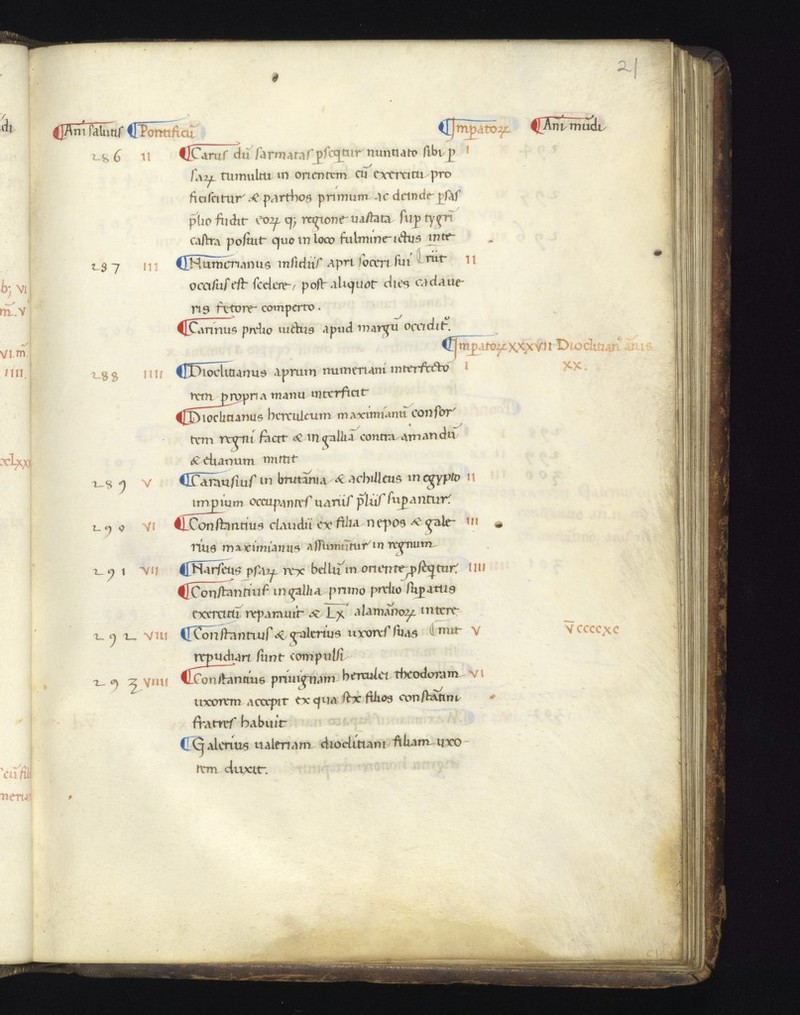 21
Ani salutis Pontificū Impatoꝝ Ani mūdi
286 II Carus dū sarmatas ꝑseq̄tur nuntiato sibi ꝑ I
saꝝ tumultu in orientem cū exercitu pro
ficiscitur & parthos primum ac deinde ꝑsas
p̄lio fudit eoꝝ q; regione uastata sup tygrī
castra posuit quo in loco fulmine ictus inte
287 III Numerianus insidiis apri soceri sui rīit II
occisus est scelere, post aliquot dies cadaue
ris fetore comperto.
Carinus prelio uictus apud margū occidit᷑.
Impatoꝝ XXXVII Dioclitian᷑ anis
288 IIII Dioclitianus aprum numeriani interfecto I XX.
rem propria manu interficit
Dioclitianus herculeum maximianū consor
tem regni facit & in galliā contra amandū
& elianum mittit
289 V Carausius in britānia & achilleus in egypto II
impium occupantes uariis p̄liis supantur.
290 VI Constantius claudii ex filia nepos & gale III
rius maximianus assumūtur in regnum
291 VII Narseus ꝑsaꝝ rex bellū in oriente ꝑseq̄tur. IIII
Constantius in gallia primo prelio supatus
exercitū reparauit & LX̄ alamānoꝝ intere
292 VIII Constantius & galerius uxores suas mit V V̄ccccxc
repudiari sunt compulsi
293 VIIII Constantius priuignam herculei theodoram VI
uxorem accepit ex qua sex filios constātini
fratres habuit
Galerius ualeriam dioclitiani filiam uxo
rem duxit.